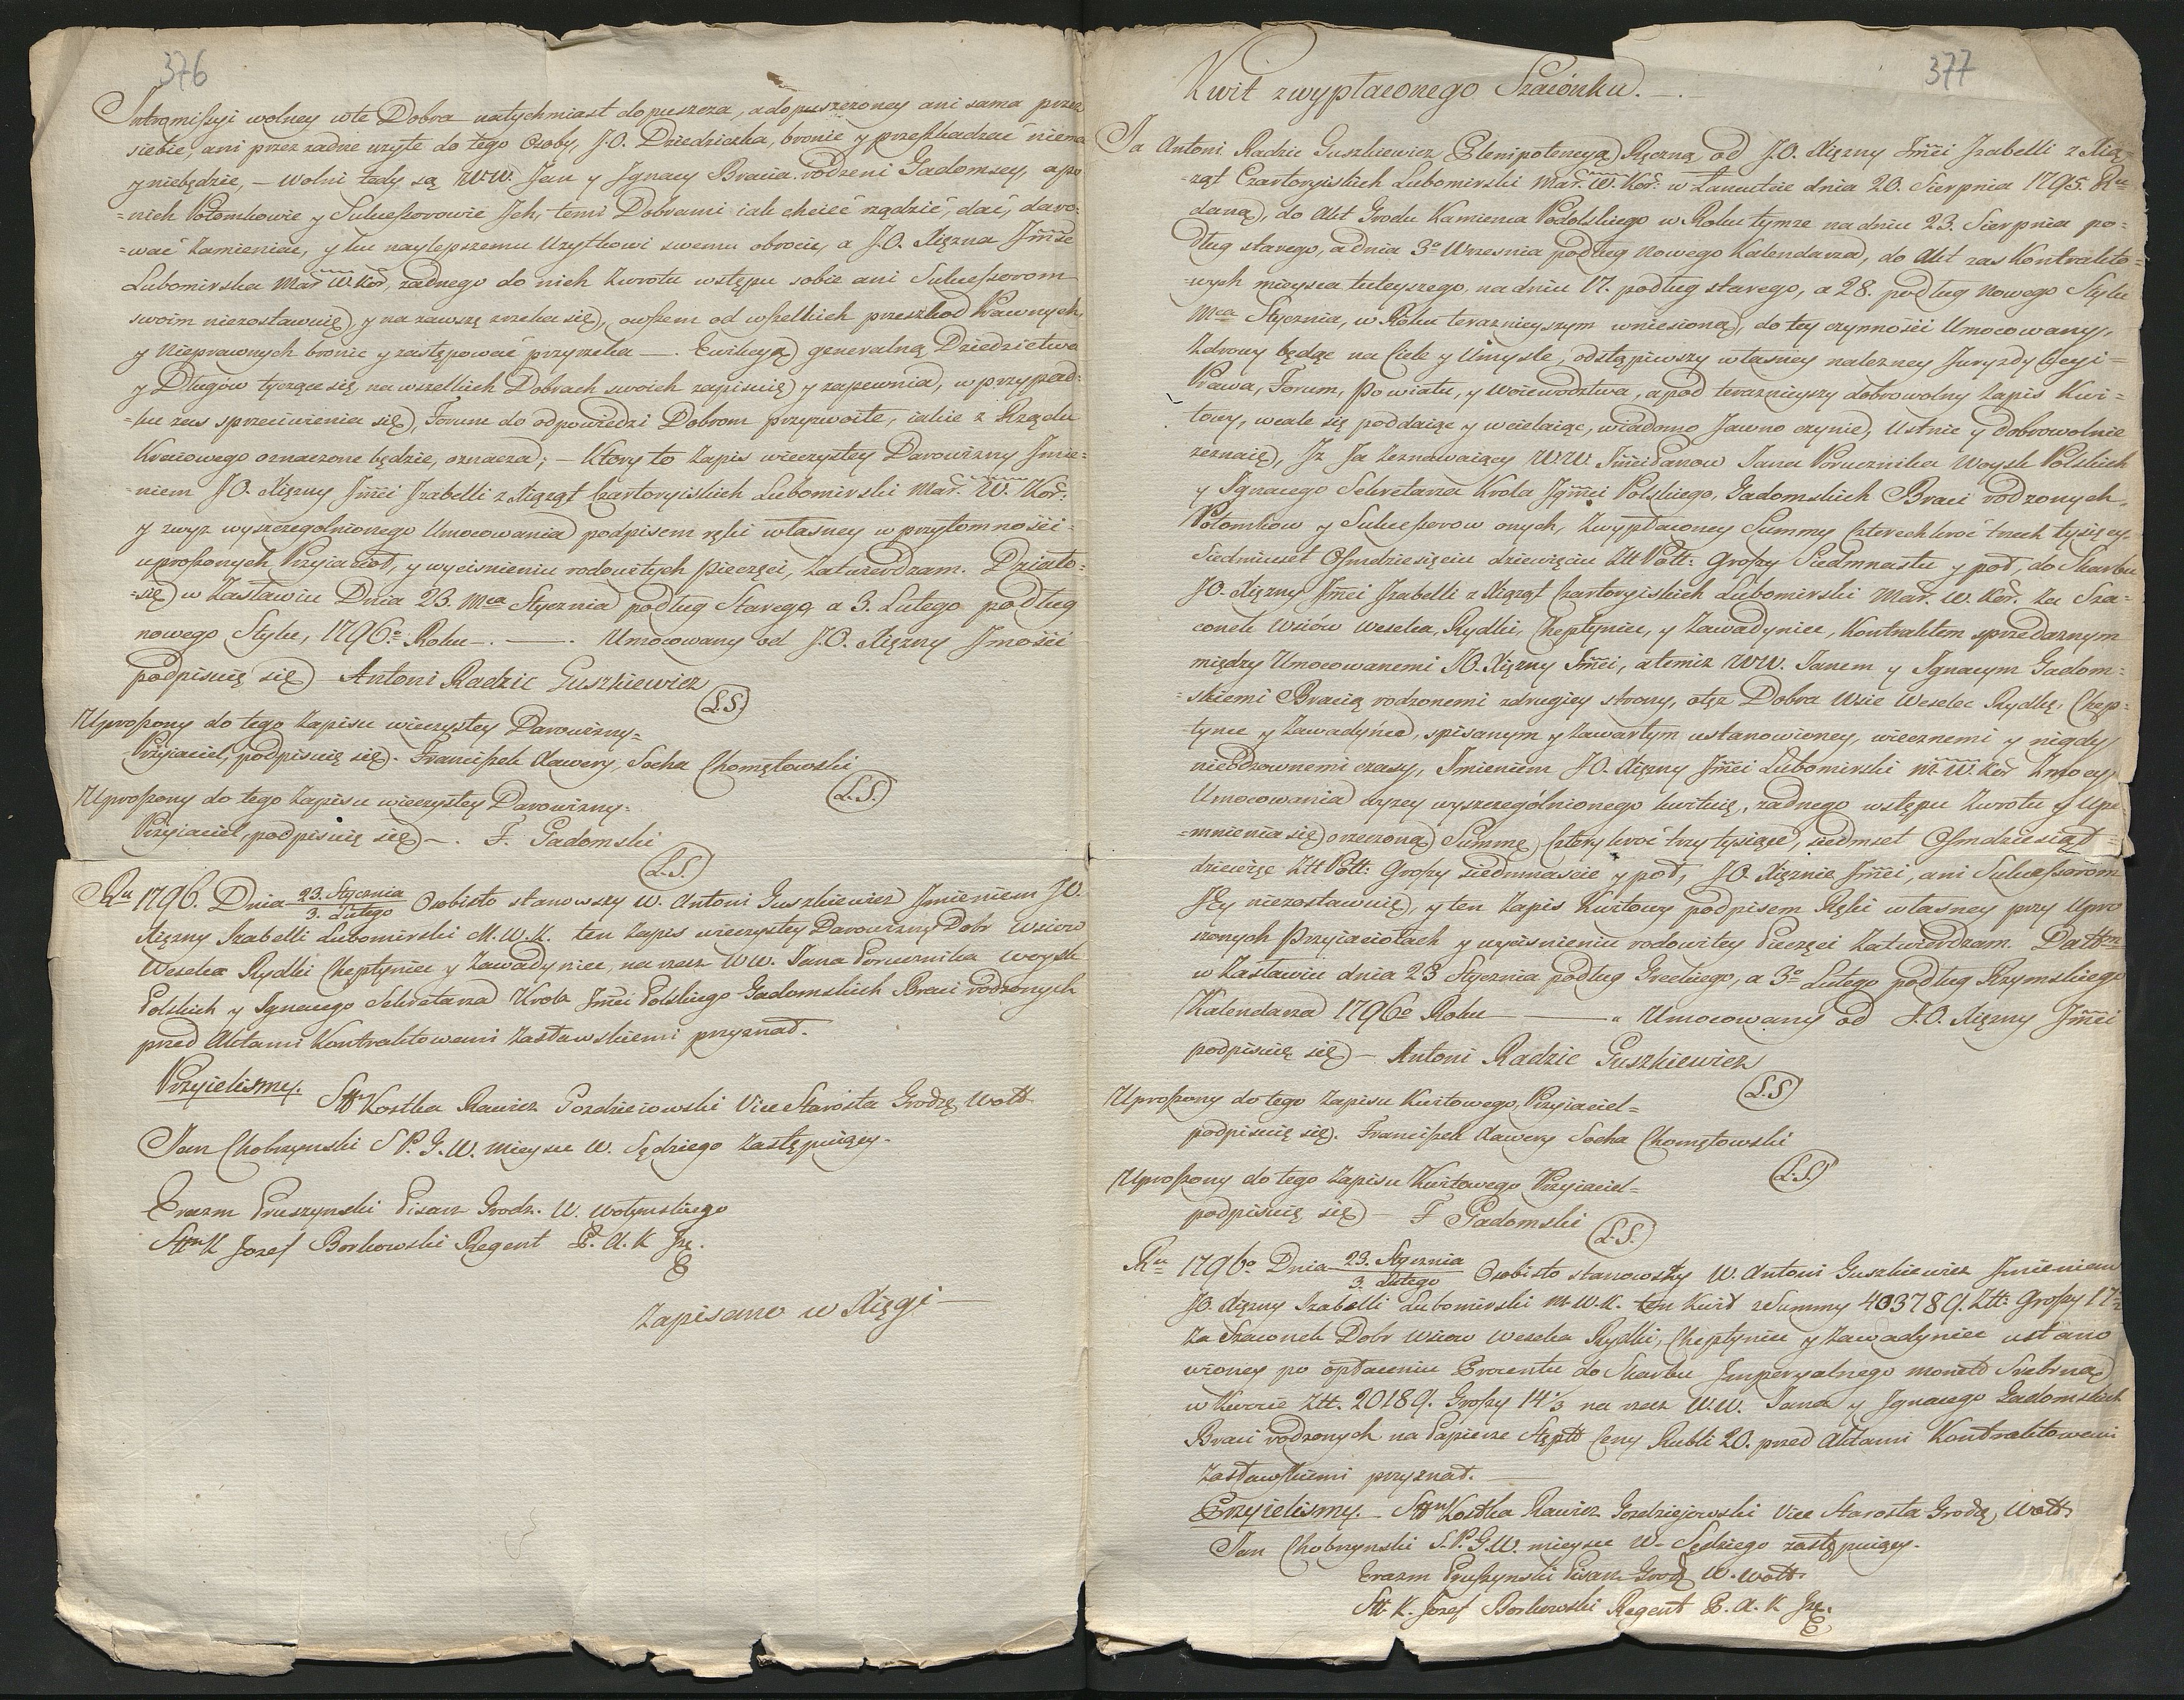 376
Intromissyi wolney wte Dobra natychmiast dopuszcza, a dopuszczoney ani sama przez
siebie, ani przez zadne uzyte do tego Osoby, J.O. Dziedziczka, bronic y przeszkadzać niema
y niebędzie, – wolni tedy są W.W. Jan y Ignacy Bracia rodzeni Gadomscy, a po
=nich Potomkowie y Sukcessorowie Ich, temi Dobrami iak chcieć rządzić, dać, daro=
=wać Zamieniać, y ku naylepszemu Uzytkowi swemu obrocić, a J.O. Xięzna Jmść
Lubomirska Mar. W. Kor. zadnego do nich Zwrotu wstępu sobie ani Sukcessorom
swoim niezostawuię, y na zawszę zrzeka się, owszem od wszelkich przeszkod Prawnych,
y Nieprawnych bronic y zastępować przyrzeka –. Ewikcyą generalną Dziedzictwa
y Długów tyczące się, na wszelkich Dobrach swoich zapisuię y zapewnia, w przypad=
=ku zas sprzeciwienia się, Forum do odpowiedzi Dobrom przyzwoite, iakie z Rządu
Kraiowego oznaczone będzie, oznacza; – Ktory to Zapis wieczystey Darowizny Imie=
=niem J.O. Xięzny Jmci Izabelli z Xiąząt Czartoryiskich Lubomirski Mar. W. Kor.
y zwyz wyszczegolnionego Umocowania podpisem ręki własney w przytomności
uproszonych Przyiacioł, y wyciśnieniu rodowitych pieczęci, Zatwierdzam. Działo=
=się w Zasławiu Dnia 23. Mca Stycznia podług Starego, a 3. Lutego podług
nowego Stylu, 1796o Roku –. –––. Umocowany od J.O. Xięzny Jmości
podpisuię się Antoni Radzic Guszkiewicz
(L.S.)
Uproszony do tego Zapisu wieczystey Darowizny=
Przyiaciel, podpisuię się. Franciszek Xawery, Socha Chomętowski
(L.S.)
Uproszony do tego Zapisu wieczystey Darowizny=
Przyiaciel, podpisuię się –. F. Gadomski
(L.S.)
Ru 1796. Dnia 23. Stycznia / 3. Lutego Osobisto stanowszy W. Antoni Guszkiewicz Imieniem J.O.
Xięzny Izabelli Lubomirski M.W.K. ten Zapis wieczystey Darowizny Dobr Wsiow
Weselca Rydki Cheptyniec y Zawadyniec, na rzecz W.W. Jana Porucznika woysk
Polskich y Ignacego Sekretarza Krola Jmci Polskiego Gadomskich Braci rodzonych
przed Aktami Kontraktowemi Zasławskiemi przyznał.
Przyieliśmy. Stt Kostka Rawicz Gozdziejowski Vice Starosta Grodz. Wołł.
Jan Chobrzynski S.P.G.W. mieysce W. Sędziego zastępuiący.
Erazm Pruszynski Pisarz Grodz. W. Wołynskiego
Sttn K Jozef Borkowski Regent P. A. K
Zapisano w Xięgi –
377
Kwit zwypłaconego Szacónku. –.
Ja Antoni Radzic Guszkiewicz, Plenipotencyą Ręczną od J.O. Xięzny Jmci Izabelli z Xią=
=ząt Czartoryiskich Lubomirski Mar. W. Kor. w Łancucie dnia 20. Sierpnia 1795. Ru
daną, do Akt Grodu Kamienca Podolskiego w Roku tymze na dniu 23. Sierpnia po=
dług starego, a dnia 3o Wrzesnia podług Nowego Kalendarza, do Akt zas Kontrakto=
=wych mieysca tuteyszego, na dniu 17. podług starego, a 28. podług Nowego Stylu
Mca Stycznia, w Roku terazniejszym wniesioną, do tey czynności Umocowany,
Zdrowy będąc na Ciele y Umysle, odstąpiwszy własney należney Juryzdykcyi=
Prawa, Forum, Powiatu, y Woiewodztwa, a pod terazniejszy dobrowolny Zapis Kwi=
towy, wcale się poddaiąc y wcielaiąc, wiadomo Jawno czynię, Ustnie y dobrowolnie
zeznaię, Iz Ja Zeznawaiący W.W. Jmci Panow Jana Porucznika Woysk Polskich
y Ignacego Sekretarza Krola Jgmci Polskiego, Gadomskich Braci rodzonych,
Potomkow y Sukcessorow onych, Zwypłaconey Summy Czterechkroć trzech tysięcy
Siedmiuset Osmdziesięciu dziewięciu Złł Poll: Groszy Siedmnastu y poł, do Skarbu
J.O. Xięzny Jmci Izabelli z Xiąząt Czartoryiskich Lubomirski Mar. W. Kor. za Sza=
conek Wsiów Weselca, Rydki, Cheptyniec, y Zawadyniec, Kontraktem sprzedaznym
między Umocowanemi J.O. Xięzny Jmci, a temiz W.W. Janem y Ignacym Gadom=
=skiemi Bracią rodzonemi zdrugiey strony, o tęz Dobra Wsie Weselec Rydkę, Chep=
=tynce y Zawadyńce, spisanym y Zawartym ustanowioney, wiecznemi y nigdy
nieodzownemi czasy, Imieniem J.O. Xięzny Jmci Lubomirski M. W. Kor Zmocy
Umocowania wyzey wyszczególnionego kwituię, zadnego wstępu Zwrotu y Upo
=mnienia się orzeczoną Summę Czterykroć trzy tysiące, siedmset Osmdziesiąt=
dziewięc Złł Poll: Groszy siedmnascie y poł, J.O. Xięznie Jmci, ani Sukcessorom
Jey niezostawuię, y ten Zapis Kwitowy podpisem Ręki własney przy Upro
szonych Przyiaciołach y wyciśnieniu rodowitey Pieczęci Zatwierdzam. Dattm
w Zasławiu dnia 23 Stycznia podług Greckiego, a 3o Lutego podług Rzymskiego
Kalendarza 1796o Roku ––– „ Umocowany od J.O. Xięzny Jmci
podpisuię się – Antoni Radzic Guszkiewicz
(L.S)
Uproszony do tego Zapisu Kwitowego, Przyiaciel=
podpisuię się. Franciszek Xawery Socha Chomętowski
(L.S.)
Uproszony do tego Zapisu Kwitowego Przyiaciel=
podpisuię się – F Gadomski
(L.S.)
Ru 1796o Dnia 23. Stycznia / 3. Lutego Osobisto stanowszy W. Antoni Guszkiewicz Imieniem
J.O. Xięzny Izabelli Lubomirski M.W.K. ten Kwit zSummy 403789. Złł: Groszy 17½
Za Szacunek Dobr Wsiow Weselca Rydki, Cheptyniec y Zawadyniec ustano
wioney po opłaceniu Procentu do Skarbu Imperyalnego monetą Srebrną
w Kwocie Złł. 20189. Groszy 14⅓ na rzecz W.W. Jana y Ignacego Gadomskich
Braci rodzonych na Papierze Stępll Ceny Rubli 20. przed Aktami Kontraktowemi
Zasławskiemi przyznał. –
Przyieliśmy. – Sttn Kostka Rawicz Gozdziejowski Vice Starosta Grodz. Wołł.
Jan Chobrzynski S.P.G.W. mieysce W. Sędziego zastępuiący.
Erazm Pruszynski Pisarz Grodz W. Wołł.
Stt. K. Jozef Borkowski Regent P. A. K